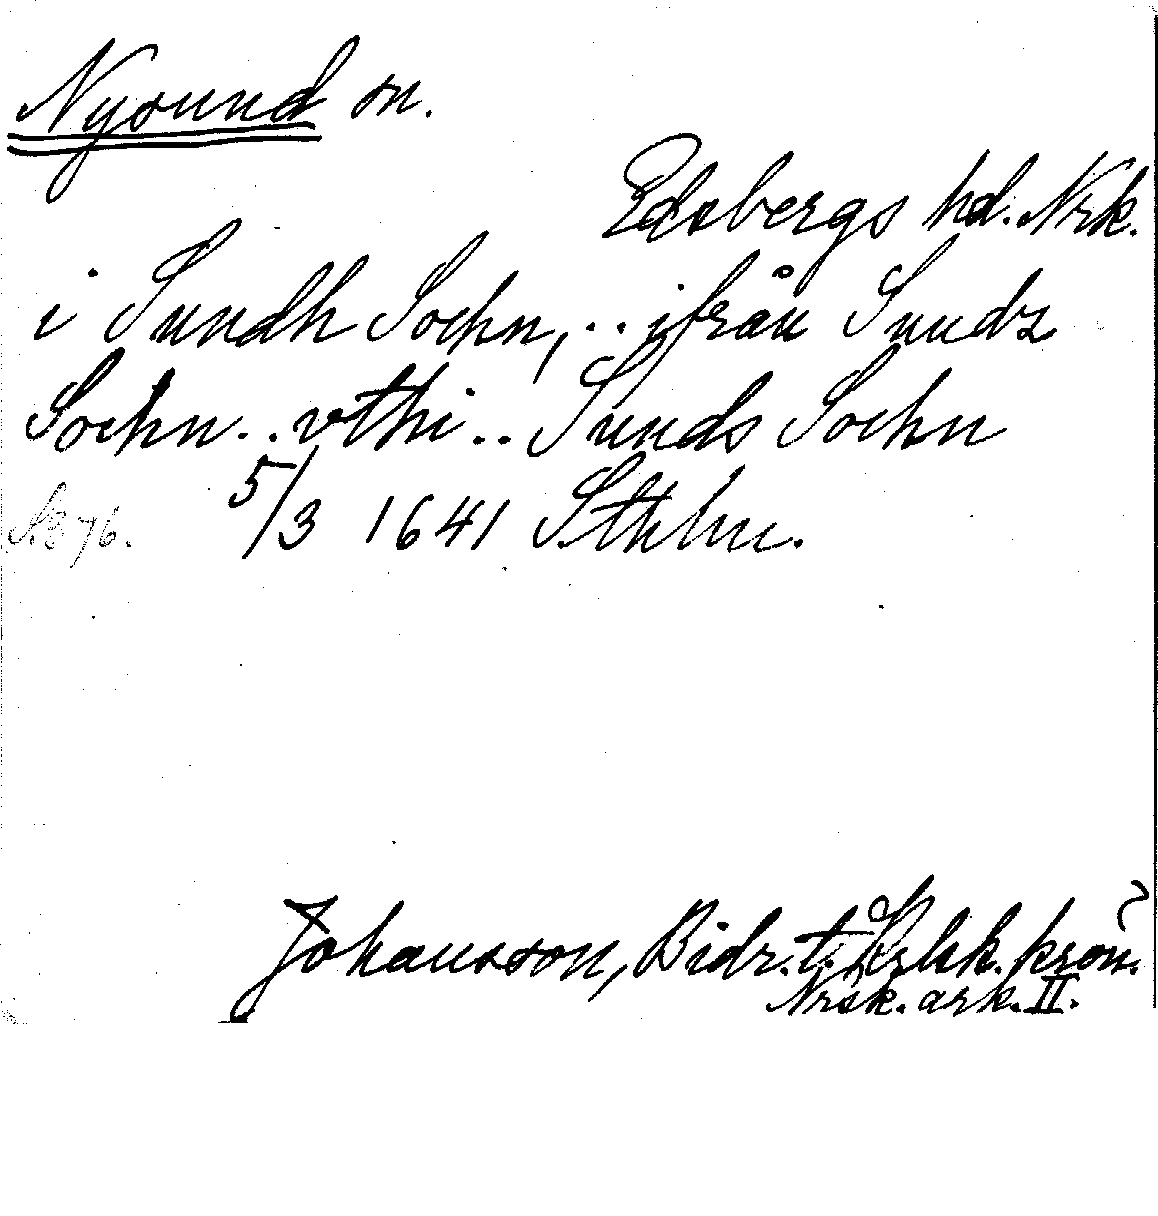 Nysund sn.
Edsbergs hd. Nrk.
i Sundh Sochn, .. ifrån Sundz
Sochn .. vthi .. Sunds Sochn
S. 376. 5/3 1641 Sthlm.
Johansson, Bidr. t. Krlsk. krön.
Nrsk. ark. II.